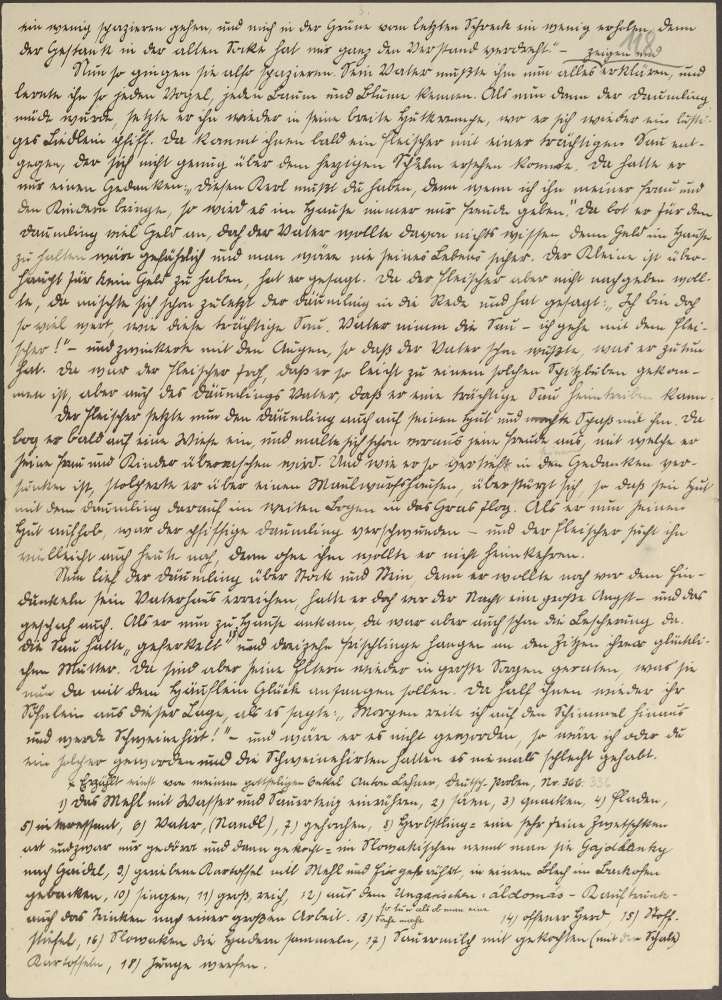 ein wenig spazieren gehen, und mich in der Grüne vom letzten Schreck ein wenig erholen, denn
118
der Gestank in der alten Socke hat mir ganz den Verstand verdreht." –
zeigen und
Nun so gingen sie also spazieren. Sein Vater mußte ihm nun alles erklären, und
lernte ihn so jeden Vogel, jeden Baum und Blume kennen. Als nun dann der Daumling
müde wurde, setzte er ihn wieder in seine breite Hutkrempe, wo er sich wieder ein lusti-
ges Liedlein pfiff. Da kommt ihnen bald ein Fleischer mit einer trächtigen Sau ent-
gegen, der sich nicht genug über dem herzigen Schelm ersehen konnte. Da hatte er
nur einen Gedanken: „diesen Kerl mußt du haben, denn wenn ich ihn meiner Frau und
den Kindern bringe, so wird es im Hause immer nur Freude geben." Da bot er für den
Daumling viel Geld an, doch der Vater wollte davon nichts wissen denn Geld im Hause
zu halten wäre gefährlich und man wäre nie seines Lebens sicher. Der Kleine ist über-
haupt für kein Geld zu haben, hat er gesagt. Da der Fleischer aber nicht nachgeben woll-
te, da mischte sich schon zuletzt der Däumling in die Rede und hat gesagt: „Ich bin doch
so viel wert, wie diese trächtige Sau. Vater nimm die Sau – ich gehe mit dem Flei-
scher!" – und zwinkerte mit den Augen, so daß der Vater schon wußte, was er zu tun
hat. Da war der Fleischer froh, daß er so leicht zu einem solchen Spitzbuben gekom-
men ist, aber auch des Däumlings Vater, daß er eine trächtige Sau heimtreiben kann.
Der Fleischer setzte nun den Däumling auch auf seinen Hut und machte Spaß mit ihm. Da
bog er bald auf eine Wiese ein, und malte sich schon voraus jene Freude aus, mit welche er
seine Frau und Kinder überraschen wird. Und wie er so in den Gedanken ver-
sunken ist, stolperte er über einen Maulwurfshaufen, überstürzt sich, so daß sein Hut
mit dem Daumling darauf im weiten Bogen in das Gras flog. Als er nun seinen
Hut aufhob, war der pfiffige Daumling verschwunden – und der Fleischer sucht ihn
vielleicht auch heute noch, denn ohne ihm wollte er nicht heimkehren.
Nun lief der Däumling über Stock und Stein, denn er wollte noch vor dem Ein-
dunkeln sein Vaterhaus erreichen, hatte er doch vor der Nacht eine große Angst – und das
geschah auch. Als er nun zu Hause ankam, da war aber auch schon die Bescherung da.
Die Sau hatte „geferkelt" und dreizehn Frischlinge hangen an den Zitzen ihrer glückli-
chen Mutter. Da sind aber seine Eltern wieder in große Sorgen geraten, was sie
nun da mit dem Häuflein Glück anfangen sollen. Da half ihnen wieder ihr
Söhnlein aus dieser Lage, als es sagte: „Morgen reite ich auf den Schimmel hinaus
und werde Schweinehirt!" – und wäre er es nicht geworden, so wäre ich oder du
ein solcher geworden und die Schweinehirten hatten es niemals schlecht gehabt.
Erzählt einst von meinem gottseligen Onkel Anton Lehner, Deutsch-Proben, Nr. 366.
1) das Mehl mit Wasser und Sauerteig einrühren, 2) säen, 3) quacken, 4) Fladen,
5) interessant, 6) Vater, (Nandl), 7) gestochen, 8) Herbstling = eine sehr feine Zwetschken
art und zwar nur gedörrt und dann gekocht = im Slowakischen nennt man sie Gajdlanky
nach Gaidel, 9) geriebene Kartoffel mit Mehl und Eier gerührt, in einem Blech im Backofen
gebacken, 10) singen, 11) groß, reich, 12) aus dem Ungarischen: áldomás – Kauftrunk –
auch das Trinken nach einer großen Arbeit. 13) so tun als ob man eine 14) offener Herd 15) Stoff-
stiefel, 16) Slowaken die Hadern sammeln, 17) Sauermilch mit gekochten (mit der Schale)
Kartoffeln, 18) Junge werfen.